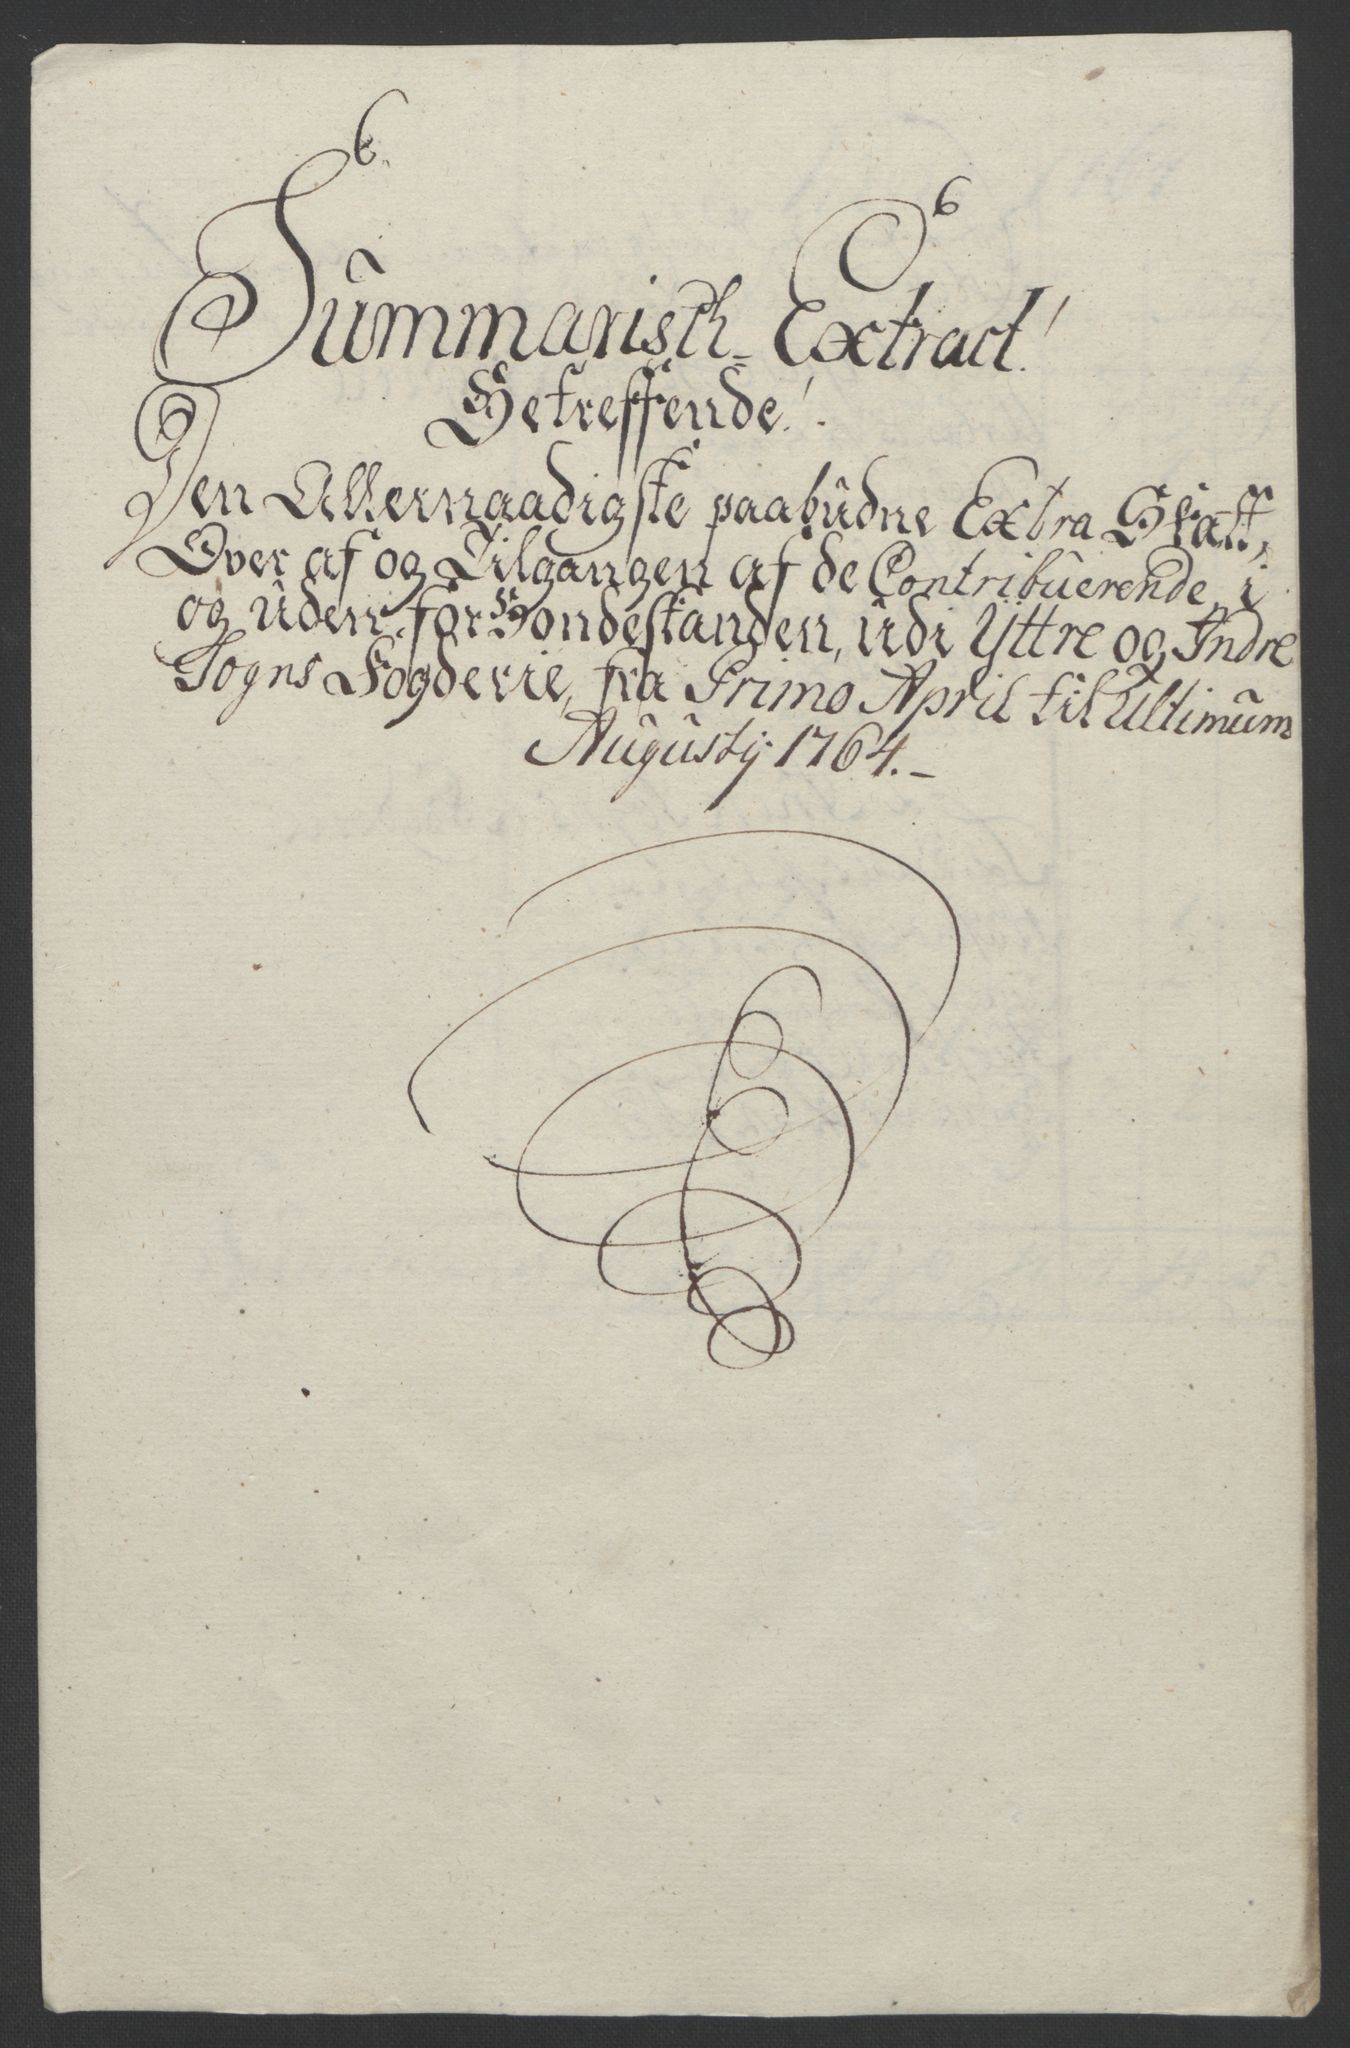 Summarisch Extract!
Betreffende!
Den Allernaadigste paabudne Extra Skatt,
Over af og Tilgangen af de Contribuerende i
og uden for Bondestanden, udi Yttre og Indre
Sogns Fogderie, fra Primo April til Ultimum
Augusty 1764.-